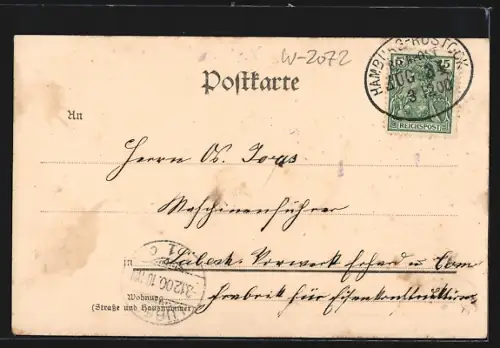 W-2072
Postkarte
HAMBURG-ROSTOCK
ZUG
3 12 00
5 5
REICHSPOST
An
Herrn Os. Jogs
Maschinenführer
in Lübeck-Vorwerk
Fabrik für Eisenkonstruktion
Wohnung
(Straße und Hausnummer)
3.12.00.